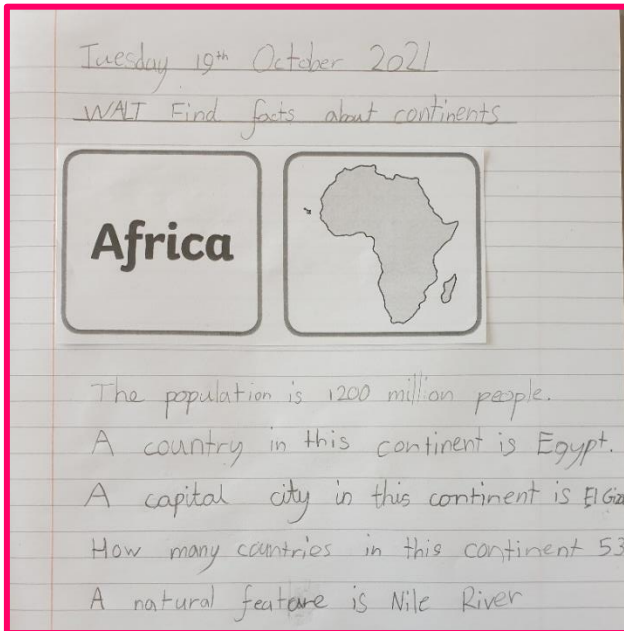 Tuesday 19th October 2021
WALT Find facts about continents
Africa
The population is 1200 million people.
A country in this continent is Egypt.
A capital city in this continent is El
How many countries in this continent 53
A natural feature is Nile River